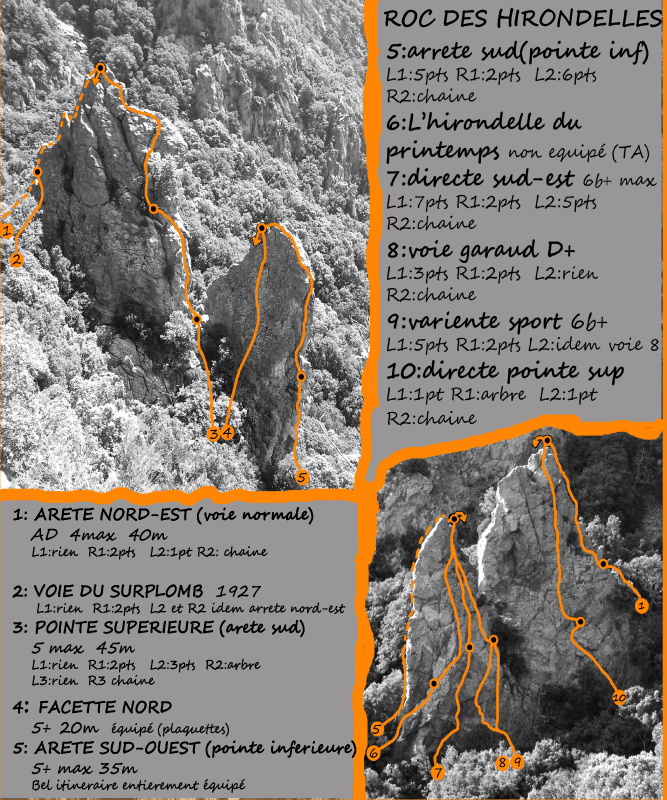 ROC DES HIRONDELLES
5:arrete sud(pointe inf)
L1:5pts R1:2pts L2:6pts
R2:chaine
6:L'hirondelle du
printemps non equipé (TA)
7:directe sud-est 6b+ max
L1:7pts R1:2pts L2:5pts
R2:chaine
8:voie garaud D+
L1:3pts R1:2pts L2:rien
R2:chaine
9:variente sport 6b+
L1:5pts R1:2pts L2:idem voie 8
10:directe pointe sup
L1:1pt R1:arbre L2:1pt
R2:chaine
1
2
3
4
5
1: ARETE NORD-EST (voie normale)
AD 4max 40m
L1:rien R1:2pts L2:1pt R2: chaine
2: VOIE DU SURPLOMB 1927
L1:rien R1:2pts L2 et R2 idem arrete nord-est
3: POINTE SUPERIEURE (arete sud)
5 max 45m
L1:rien R1:2pts L2:3pts R2:arbre
L3:rien R3 chaine
4: FACETTE NORD
5+ 20m équipé (plaquettes)
5: ARETE SUD-OUEST (pointe inferieure)
5+ max 35m
Bel itineraire entierement équipé
1
10
5
6
7
8
9